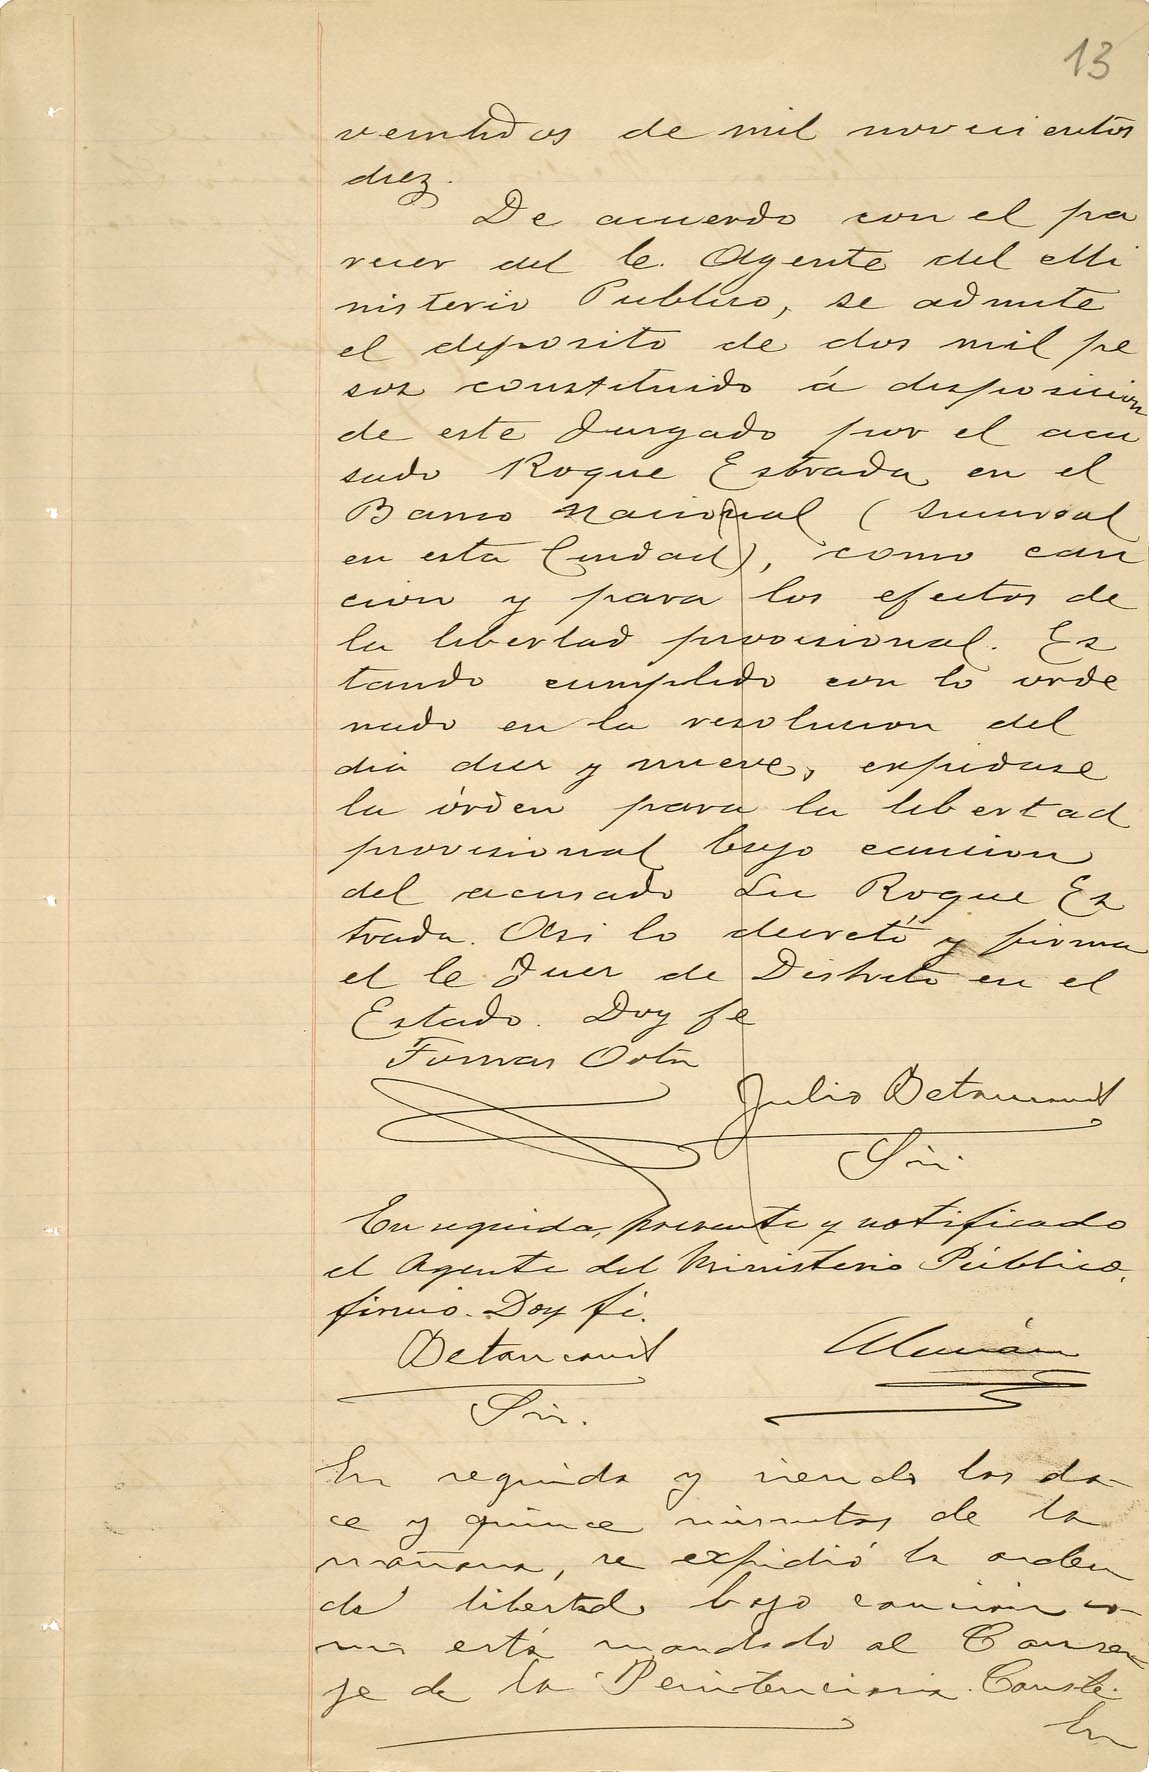 13
veintidos de mil novecientos
diez.
De acuerdo con el pa
recer del C. Agente del Mi
nisterio Publico, se admite
el deposito de dos mil pe
sos constituido á disposicion
de este Juzgado por el acu
sado Roque Estrada en el
Banco Nacional (Sucursal
en esta Ciudad), como cau
cion y para los efectos de
la libertad provisional. Es
tando cumplido con lo orde
nado en la resolucion del
dia diez y nueve, expidase
la órden para la libertad
provisional bajo caucion
del acusado Lic Roque Es
trada. Asi lo decretó y firma
el C. Juez de Distrito en el
Estado. Doy fe
Tomas Ortiz
Julio Betancourt
Srio.
En seguida, presente y notificado
el Agente del Ministerio Público,
firmó. Doy fé.
Betancourt
Alemán
Srio.
En seguida y siendo las do-
ce y quince minutos de la
mañana, se expidió la orden
de libertad bajo caucion co-
mo está mandado al Conser-
je de la Penitenciaria. Conste.
En